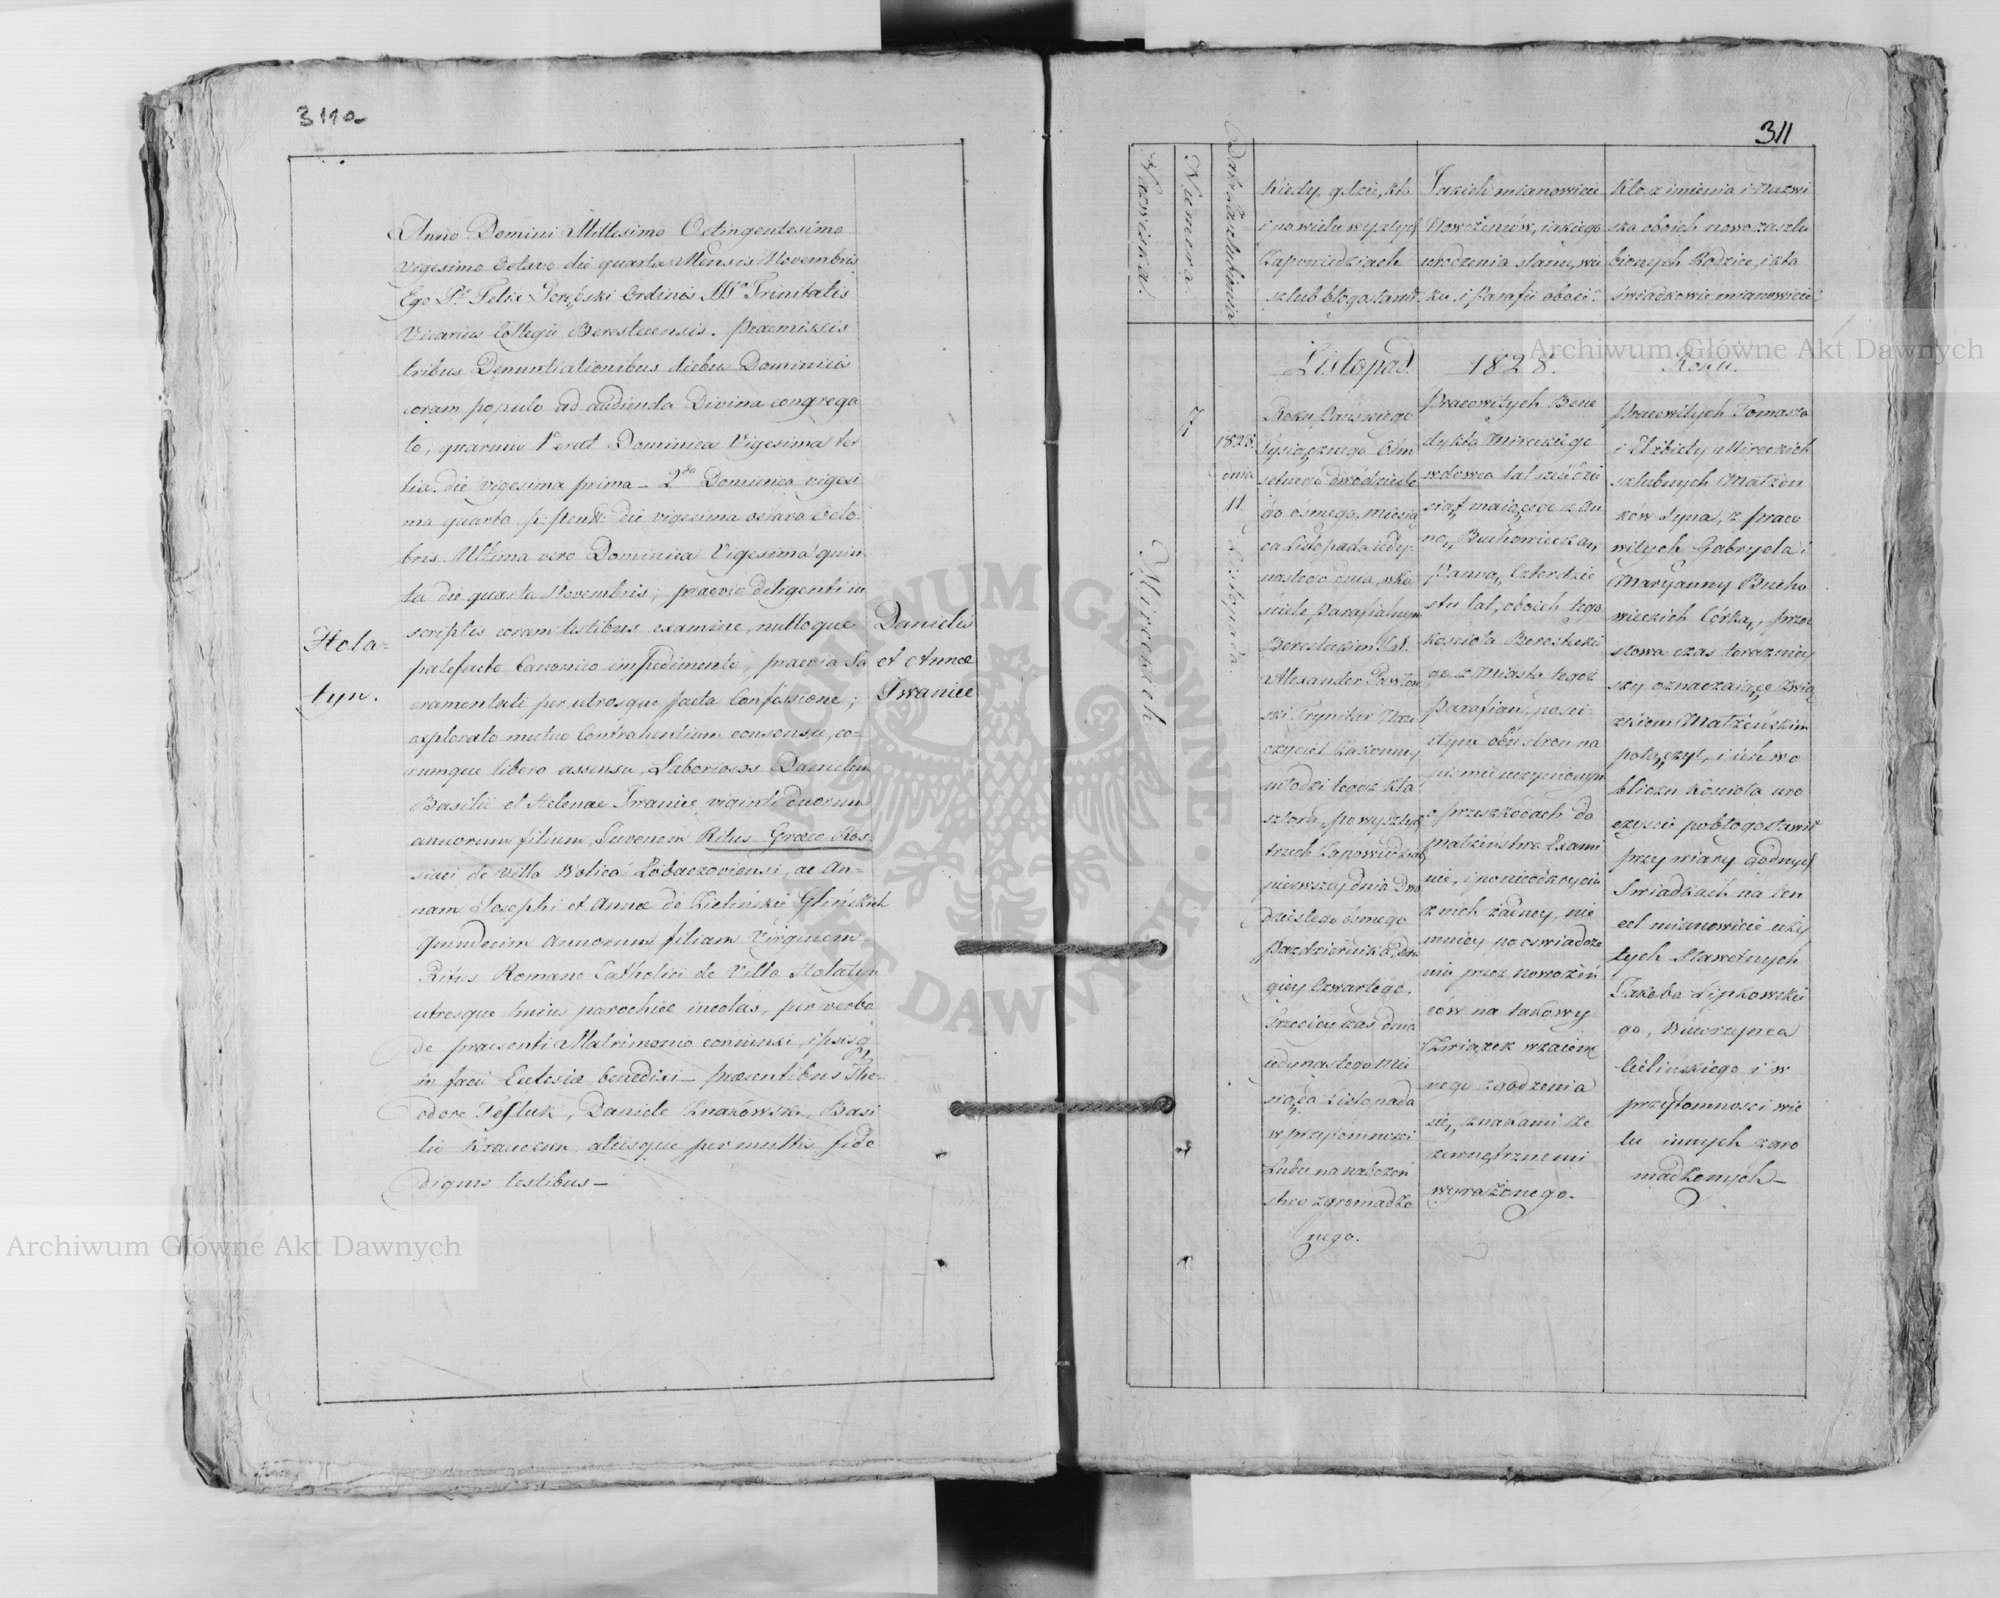 311a
Anno Domini Millesimo Octingentesimo
Vigesimo Octavo die quarta Mensis Novembris
Ego Pr Felix Ordinis SSo Trinitatis
Vicarius Collegii Berestecensis. Praemissis
tribus Denuntiationibus diebus Dominicis
coram populo ad audienda Divina congrega
to, quarum 1 erat Dominica Vigesima ter
tia die vigesima prima - 2da Dominica vigesi
ma quarta die vigesima octava Octo
bris Ultima vero Dominica Vigesima quin
ta die quarta Novembris; praevio diligenti in
scriptis coram testibus examine, nulloque
patefacto Canonico impedimento, praevia Sa
cramentali per utrosque facta Confessione;
explorato mutuo Contrahentium consensu, eo-
rumque libero assensu, Laboriosos Danielem
Basilii et Helenae Iwanice viginti duorum
annorum filium, Juvenem Ritus Graeco Ros-
siaci de Villa Wolica Lobaczoviensi, ac An-
nam Josephi et Annae de Zielińskie Glińskich
quindecim annorum filiam Virginem
Ritus Romano Catholici de Villa Holatyn
utrosque huius parochiae incolas, per verba
de praesenti Matrimonio coniunxi, ipsisq
in facie Ecclesiae benedixi - praesentibus The-
odoro Daniele Basi
lio aliisque per multis fide
dignis testibus -
Hola-
tyn.
Danielis
et Annae
Iwanice
311
Nazwiska.
Numera
Data Zaślubienia
Kiedy, gdzie, kto
i po wielu wyszłych
Zapowiedziach
szlub błogosławił
Jakich mianowicie
Nowożeńców, jakiego
urodzenia stanu, wie
ku, i Parafii oboie
Kto z imienia i nazwi
ska oboich nowo zaślu
bionych Rodzice, i kto
świadkowie mianowicie
Listopad. 1828. Roku.
Mireckich
7
1828.
dnia
11
Listopada.
Roku Pańskiego
Tysiącznego Ośm
setnego dwódzieste
go osmego, miesią
ca Listopada iedy-
nastego dnia, w Ko
ściele Parafialnym
Beresteckim
Alexander Pawłow
ski Trynitarz Nau
czyciel Zakonney
młodzi tegoż kla
sztoru, po wyszłych
trzech Zapowiedziach
pierwszy dnia Dwó
dziestego ósmego
Października, dru
giey Czwartego.
Trzeciey zaś dnia
iedynastego Mie
siąca Listopada
w przytomności
Ludu na nabożeń
stwo zgromadzo
nego.
Pracowitych Bene
dykta Mireckiego
wdowca lat sześćdzie
siąt maiącego z An
ną Buchowiecką,
Panną, Czterdzie
stu lat, oboich tego
Kościoła Berestecki
go z Miasta tegoż
Parafian, po ści-
słym obustron na
pismie uczynionym
o przeszkodach do
małżeństwa Exami
nie, i po nieodkryciu
z nich żadney, nie
mniey po oswiadcze
niu przez Nowożeń
ców na takowy
Związek wzaiem
nego zgodzenia
się, znakami ze
zewnętrznemi
wyrażonego.
Pracowitych Tomasza
i Elżbiety Mireckich
szlubnych Małżon
ków Syna, z praco
witych Gabryela i
Maryanny Bucho
wieckich Córką, przez
słowa czas teraźniey
szy oznaczaiące Zwią
zkiem Małżeńskim
połączył, i ich w o
bliczu Kościoła uro
czyście pobłogosławił
przy wiary godnych
Swiadkach na ten
cel mianowicie uży
tych Sławetnych
Jakóba Lipkowskie
go, Wawrzyńca
Cielińskiego i w
przytomności wie
lu innych zgro
madzonych -
Archiwum Główne Akt Dawnych
Archiwum Główne Akt Dawnych
ARCHIWUM GŁÓWNE AKT DAWNYCH